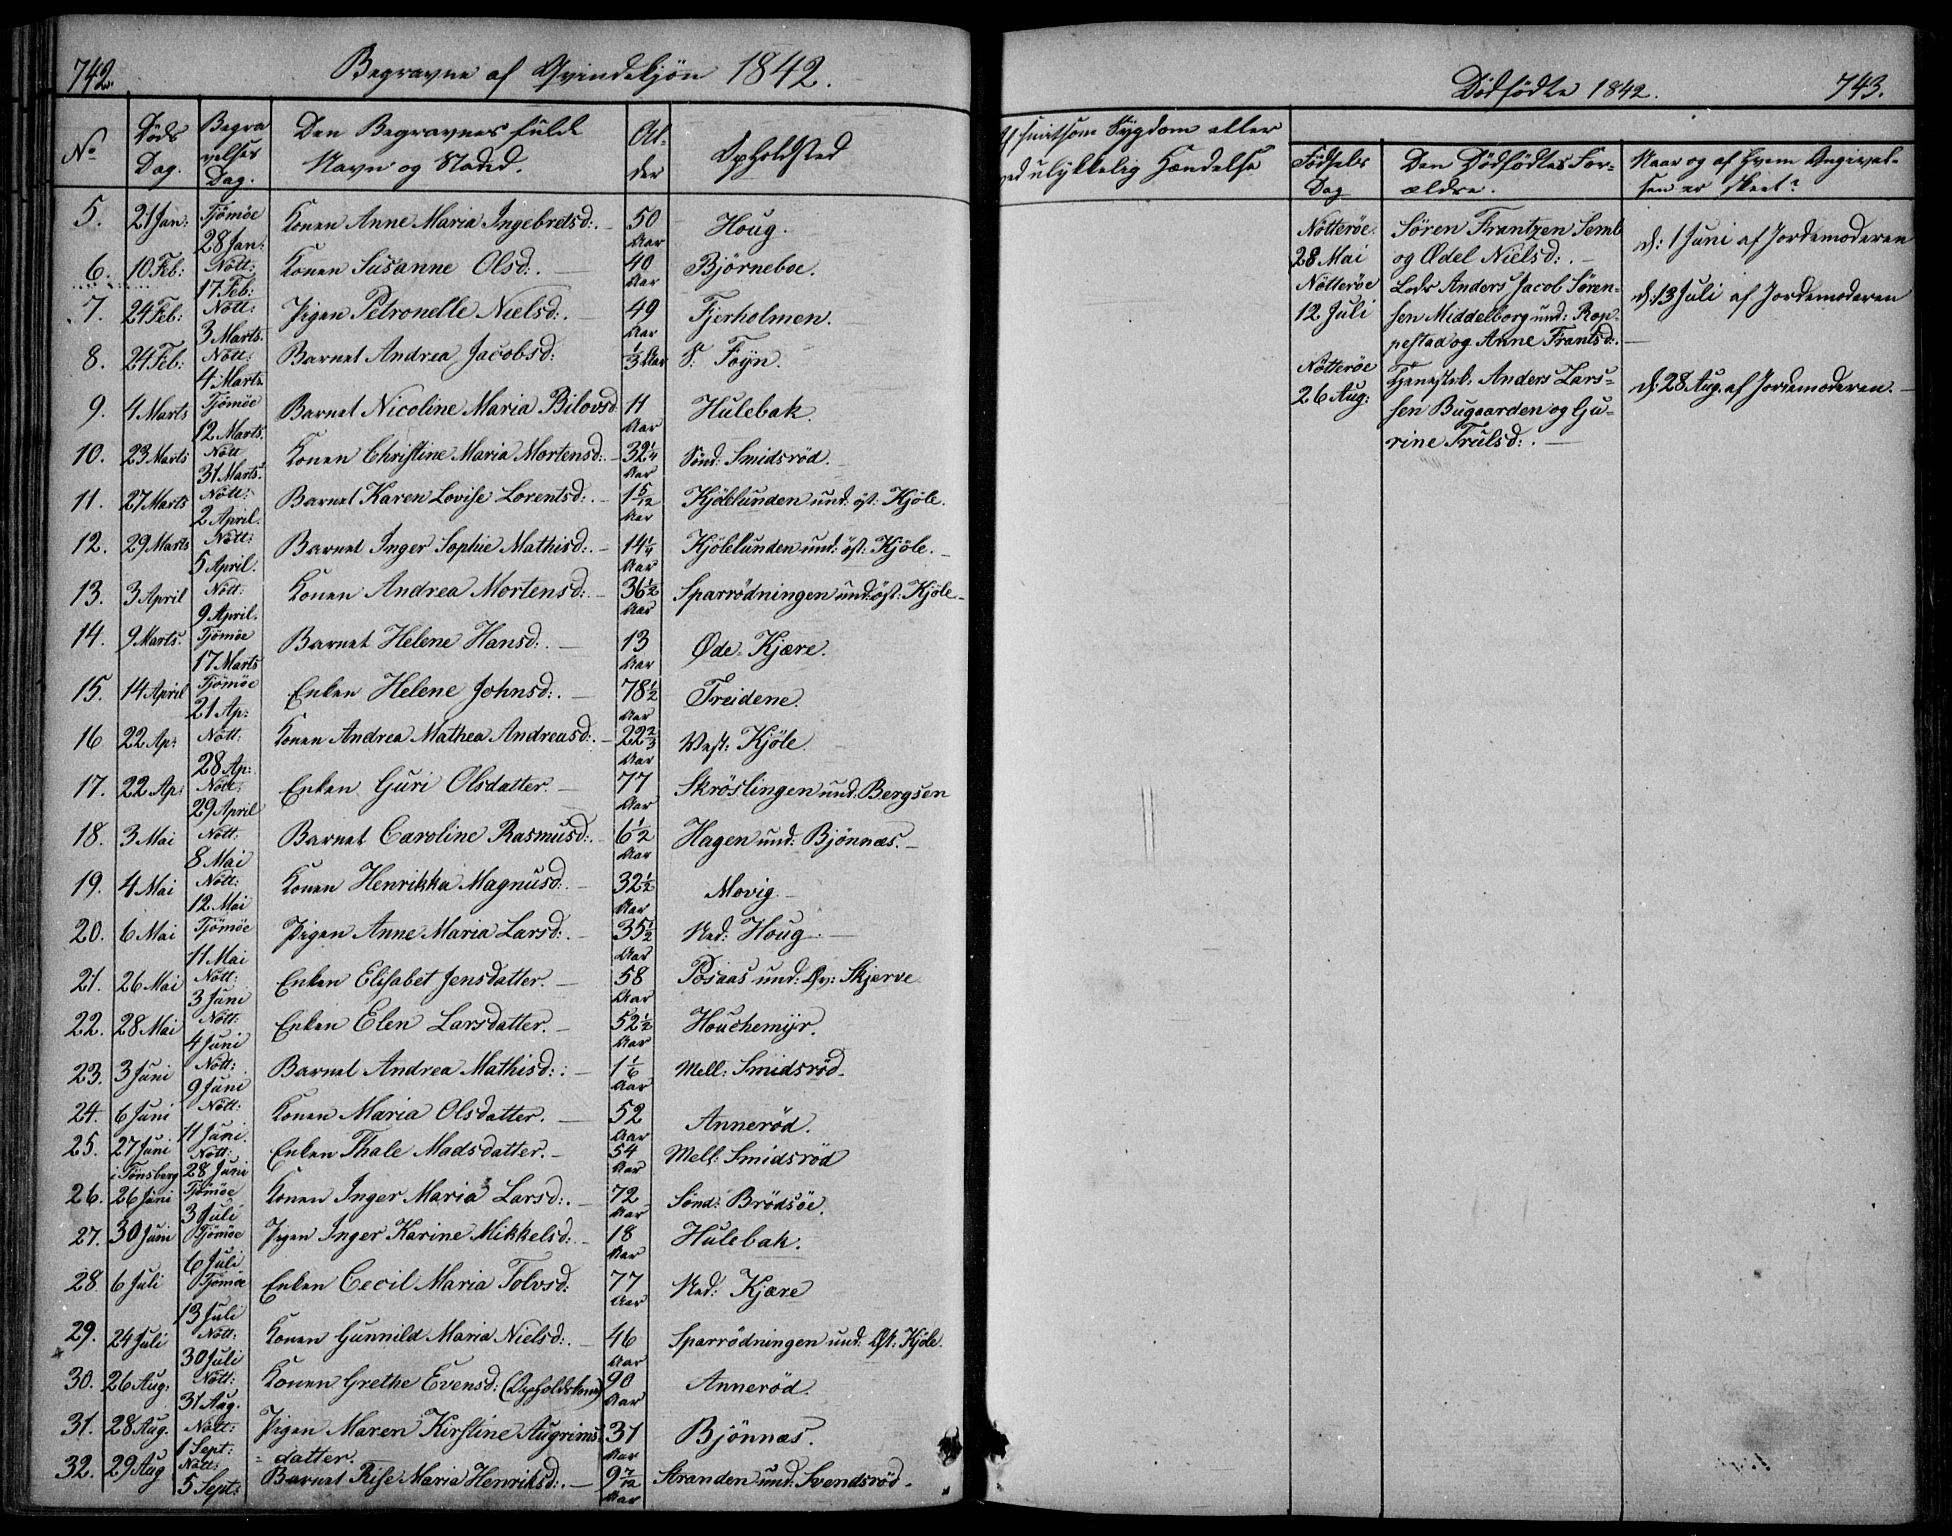 742.
Begravne af Qvindekjön 1842.
No
Døds Dag.
Begravelses Dag.
Den Begravnes fulde Navn og Stand.
Alder
Opholdsted
5. 21 Jan: Tjömöe 28 Jan: Konen Anne Maria Ingebretsd:. 50 Aar Houg.
6. 10 Feb: Nött: 17 Feb: Konen Susanne Olsd:. 40 Aar Björneboe.
7. 24 Feb: Nött: 3 Marts. Pigen Petronelle Nielsd:. 49 Aar Fjerholmen.
8. 24 Feb: Nött: 4 Marts. Barnet Andrea Jacobsd: 1/3 Aar S: Foyn.
9. 4 Marts Tjömöe 12 Marts. Barnet Nicoline Maria Bilovsd: 11 Aar Hulebak
10. 23 Marts Nött 31 Marts. Konen Christine Maria Mortensd:. 32 1/4 Aar Sönd: Smidsröd.
11. 27 Marts Nött: 2 April. Barnet Karen Lovise Lorentsd:. 1 5/12 Aar Kjölelunden und: öst: Kjöle.
12. 29 Marts Nött: 5 April. Barnet Inger Sophie Mathisd:. 14 1/4 Aar Kjölelunden und: öst: Kjöle.
13. 3 April Nött: 9 April. Konen Andrea Mortensd:. 36 1/2 Aar Sparrödningen und: öst: Kjöle.
14. 9 Marts. Tjömöe 17 Marts Barnet Helene Hansd:. 13 Aar Øde Kjære.
15. 14 April Tjömöe 21 Ap: Enken Helene Johnsd:. 78 1/2 Aar Treidene.
16 22 Ap: Nött: 28 Ap: Konen Andrea Mathea Andreasd:. 22 2/3 Aar Vest: Kjöle.
17. 22 Ap: Nött: 29 April Enken Guri Olsdatter. 77 Aar Skröslingen und: Bergsen
18. 3 Mai Nött: 8 Mai Barnet Caroline Rasmusd:. 6 1/2 Aar Hagen und: Bjönnæs.
19. 4 Mai Nött: 12 Mai Konen Henrikka Magnusd:. 32 1/2 Aar Movig.
20. 6 Mai Tjömöe 11 Mai Pigen Anne Maria Larsd:. 35 1/2 Aar Ned: Houg.
21. 26 Mai Nött: 3 Juni Enken Elisabet Jensdatter. 58 Aar Posaas und: Øv: Skjerve
22. 28 Mai Nött: 4 Juni Enken Elen Larsdatter. 52 1/2 Aar Houchemyr.
23. 3 Juni Nött: 9 Juni Barnet Andrea Mathisd:. 1 1/6 Aar Mell: Smidsröd.
24. 6 Juni Nött: 11 Juni. Konen Maria Olsdatter. 52 Aar Anneröd.
25. 27 Juni i Tönsberg Nött: 28 Juni Enken Thale Madsdatter. 54 Aar Mell: Smidsröd
26. 26 Juni Tjömöe 3 Juli Konen Inger Maria Larsd:. 72 Aar Sönd: Brödsöe.
27. 30 Juni Tjömöe 6 Juli Pigen Inger Karine Mikkelsd:. 18 Aar Hulebak.
28. 6 Juli Tjömöe 13 Juli Enken Cecil Maria Tolvsd: 77 Aar Ned: Kjære
29. 24 Juli Nött: 30 Juli Konen Gunnild Maria Nielsd:. 46 Aar Sparrödningen und: Øst: Kjöle.
30. 26 Aug: Nött: 31 Aug. Konen Grethe Evensd: (Opholdskone) 90 Aar Anneröd.
31. 28 Aug. Nött: 1 Sept: Pigen Maren Kirstine Augrims=datter. 31 Aar Bjönnæs.
32. 29 Aug Nött: 5 Sept: Barnet Rise Maria Henriksd:. 9 7/12 Aar Stranden und: Svendsröd.
743.
Dödfödte 1842.
Af hvilksom Sygdom eller
ved ulykkelig Hændelse
Födsels Dag
Den Dödfödtes Forældre.
Naar og af hvem Angivelsen er skeet?
Nötteröe. 28 Mai
Sören Frantzen Semb
og Ødel Nielsd:.
d: 1 Juni af Jordemoderen
Nötteröe 12 Juli
Anders Jacob Sören-
sen Middelborg und: Rop-
pestad og Anne Frantsd:.
d: 13 Juli af Jordemoderen
Nötteröe 26 Aug:
Tjenestek. Anders Lars-
sen Bugaarden og Gu-
rine Trulsd:.
d: 28 Aug. af Jordemoderen.